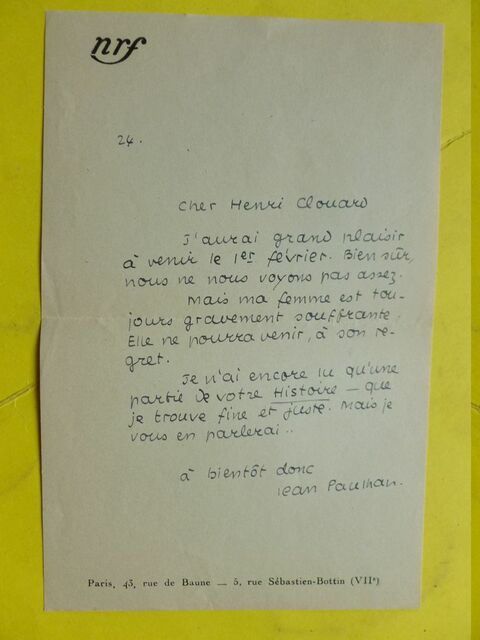 nrf
24.
cher Henri Clouard
J'aurai grand plaisir
à venir le 1er février. Bien sûr,
nous ne nous voyons pas assez.
Mais ma femme est tou-
jours gravement souffrante.
Elle ne pourra venir, à son re-
gret.
Je n'ai encore lu qu'une
partie de votre Histoire — que
je trouve fine et juste. Mais je
vous en parlerai..
à bientôt donc
Jean Paulhan.
Paris, 43, rue de Baune — 5, rue Sébastien-Bottin (VIIe)